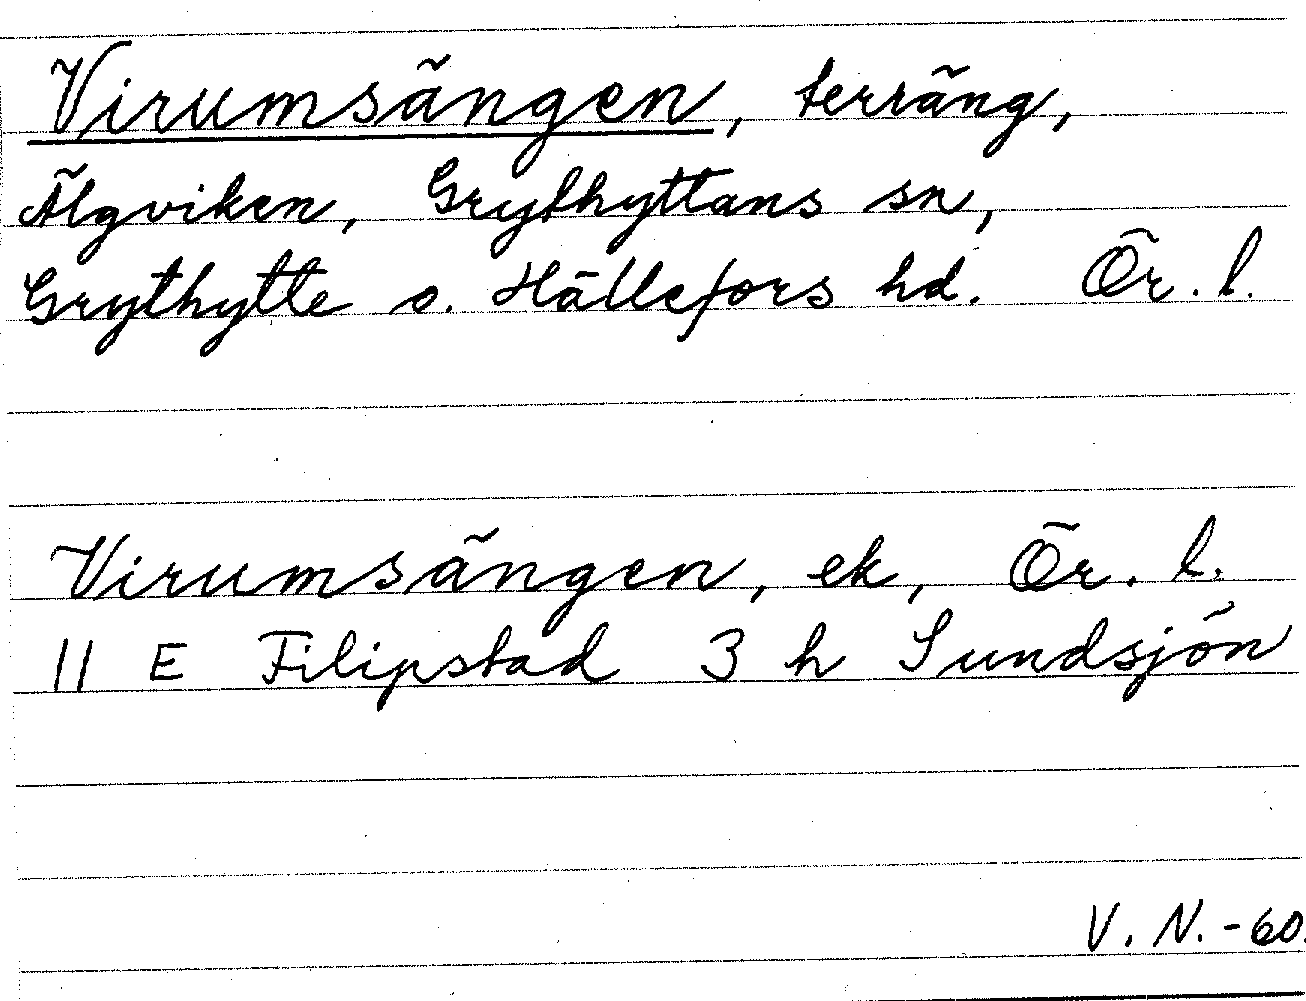 Virumsängen, terräng,
Älgviken, Grythyttans sn,
Grythytte o. Hällefors hd. Ör. l.
Virumsängen, ek, Ör. l.
11 E Filipstad 3 h Sundsjön
V. N. -60.